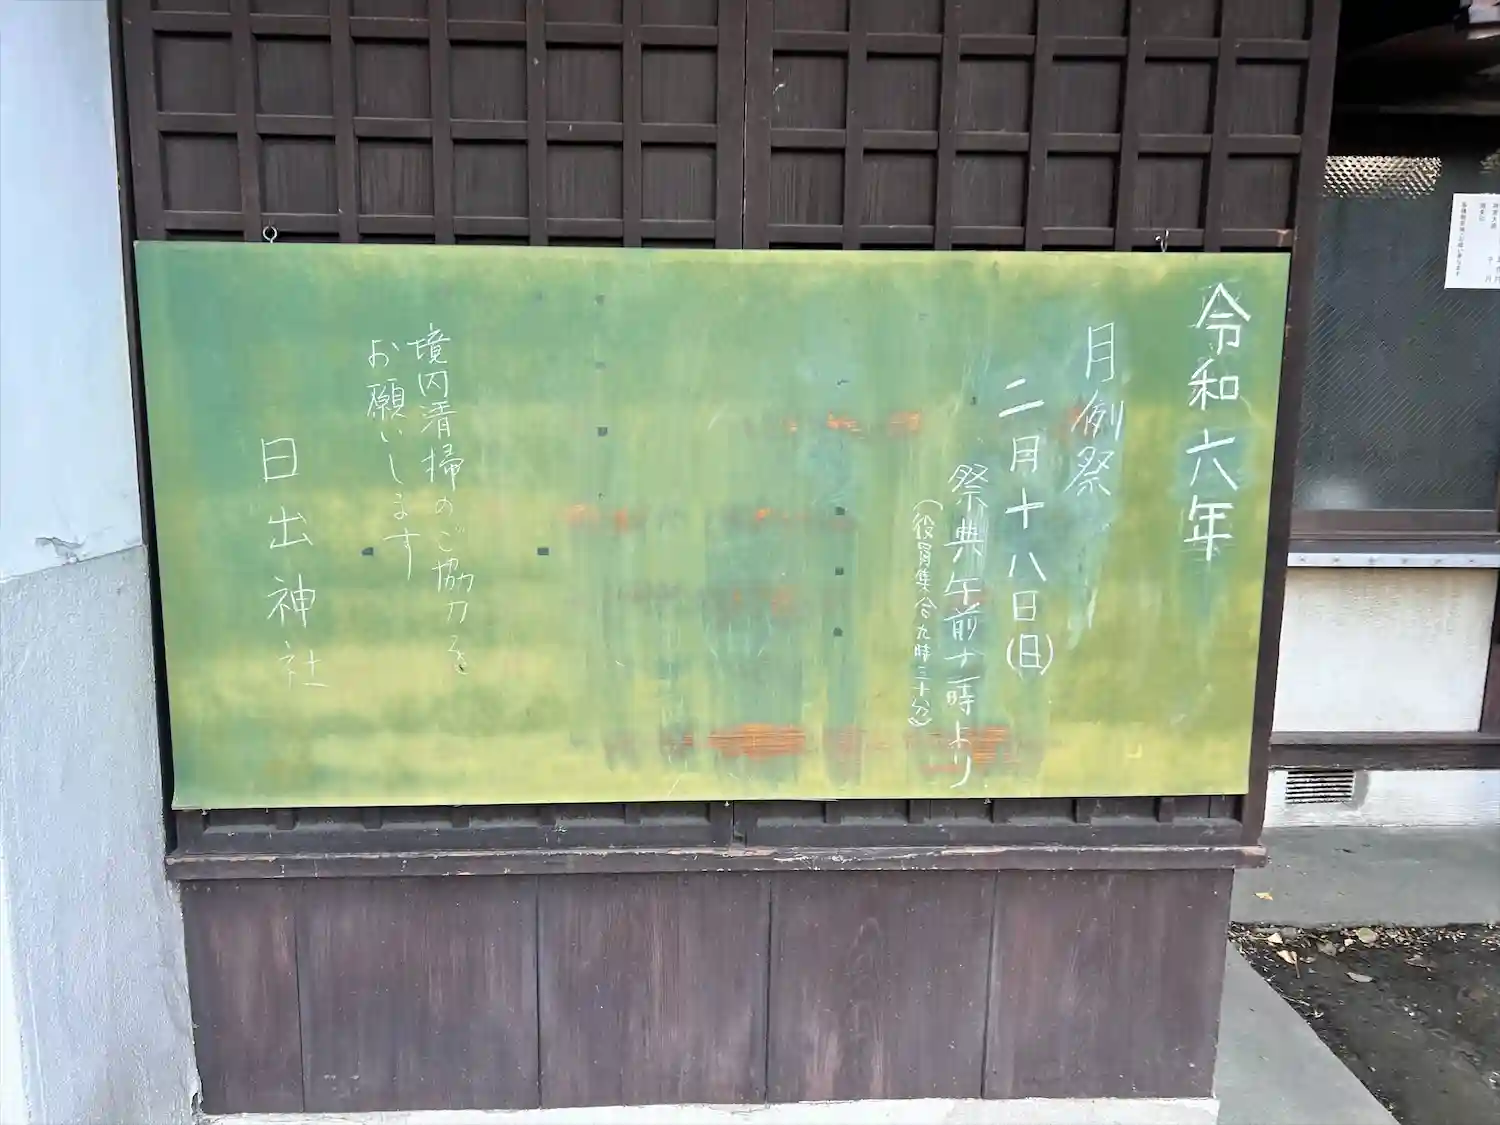 令和六年
月例祭
二月十八日(日)
祭典午前十一時より
(役員集合九時三十分)
境内清掃のご協力を
お願いします
日出神社